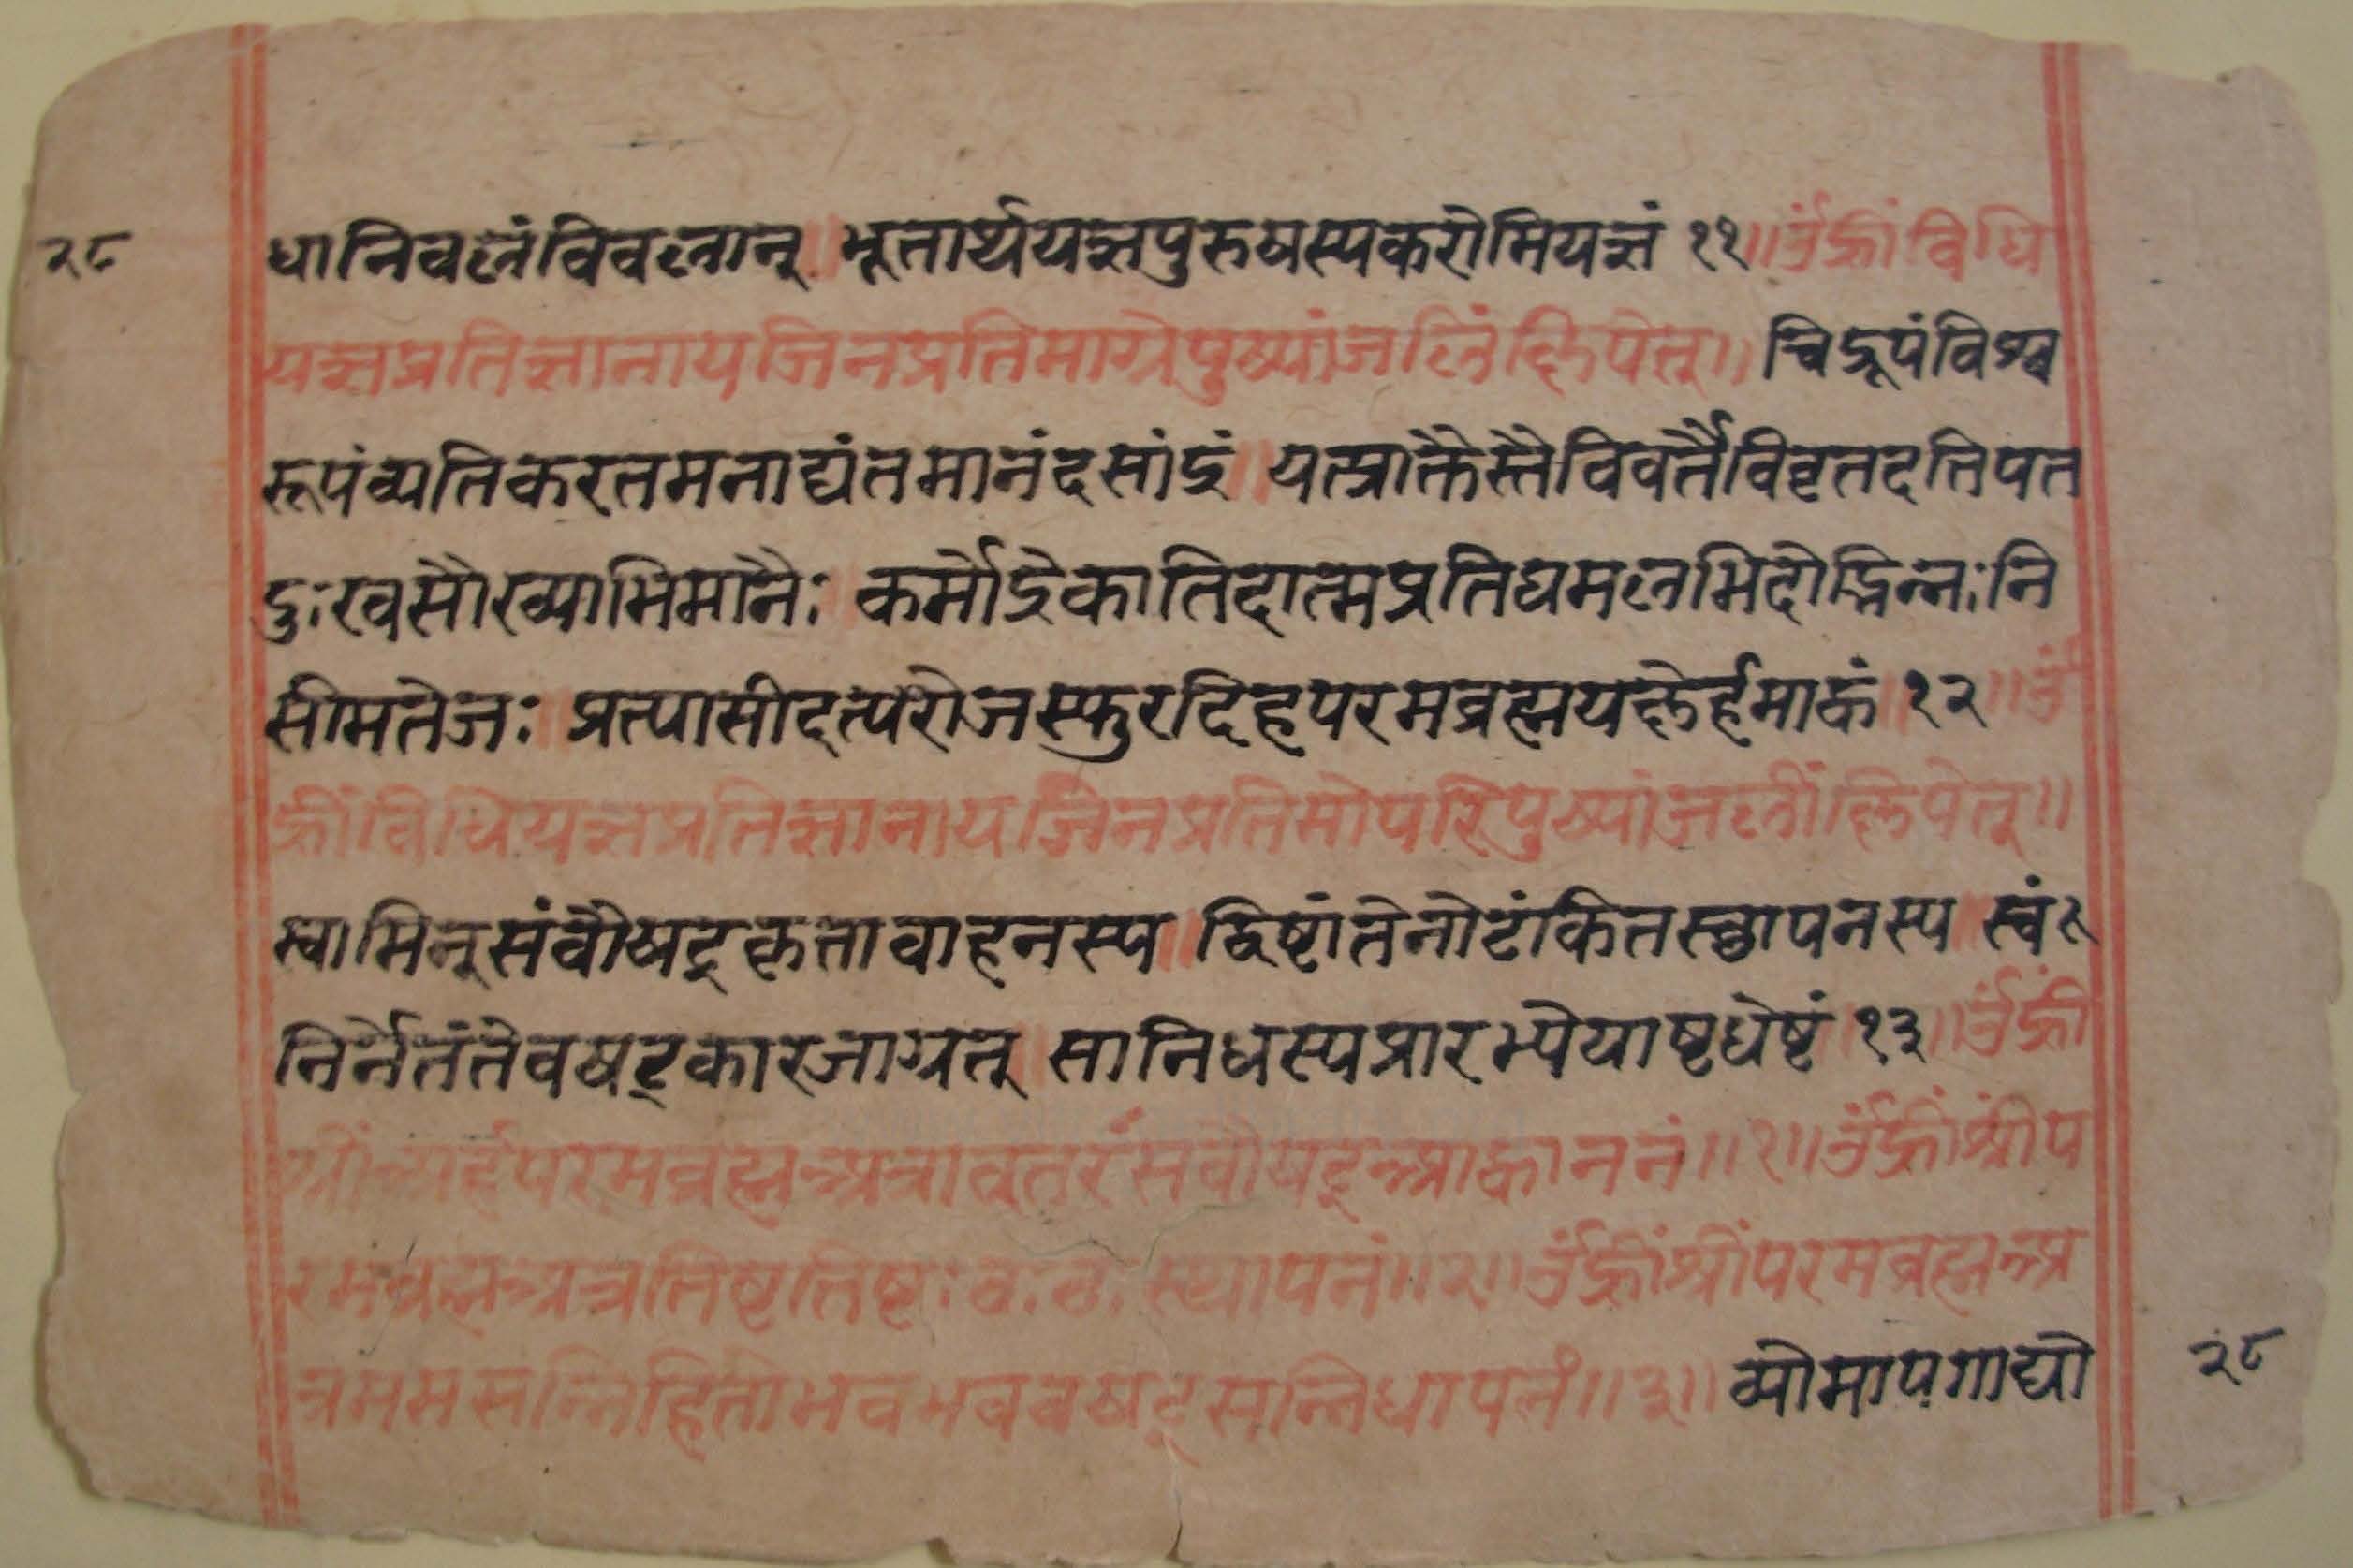 २८
धानिवलंविवलान् ॥ भूतार्थयज्ञपुरुषस्यकरोमियज्ञं ११ ॥ ॐह्रीं विधि
यज्ञप्रतिज्ञानायजिनप्रतिमाग्रेपुष्पांजलिंक्षिपेत् ॥ चिद्रूपंविश्व
रूपंव्यतिकरतमनाद्यंतमानंदसांद्रं ॥ यत्प्राक्तैस्तैविवर्तैविवृतदतिपत
दुःखसौख्याभिमानैः कर्मोद्रेकातिदात्मप्रतिघमलभिदोद्भिन्नःनि
सीमतेजः ॥ प्रत्यासीदत्परोजस्फुरदिहपरमब्रह्मयक्षेर्हमाकं १२ ॥ ॐ
ह्रींविधियज्ञप्रतिज्ञानायजिनप्रतिमोपरिपुष्पांजलींक्षिपेत् ॥
स्वामिन्संवौषट्कृतावाहनस्य ॥ द्विष्टांतेनोटंकितस्थापनस्य ॥ स्वं
निर्नेतंतेवषट्कारजाग्रत् ॥ सानिधस्यप्रारम्पेयाष्टधेष्टं १३ ॥ ॐह्रीं
श्रीं परमब्रह्मअत्रावतरसंवौषट्आह्वाननं ॥१॥ ॐह्रींश्रींप
रमब्रह्मअत्रतिष्टतिष्टः ठ. ठ. स्थापनं ॥२॥ ॐह्रींश्रींपरमब्रह्मअ
त्रममसन्निहितोभवभववषट्सन्निधापनं ॥३॥ व्योमापगाद्यो
२८